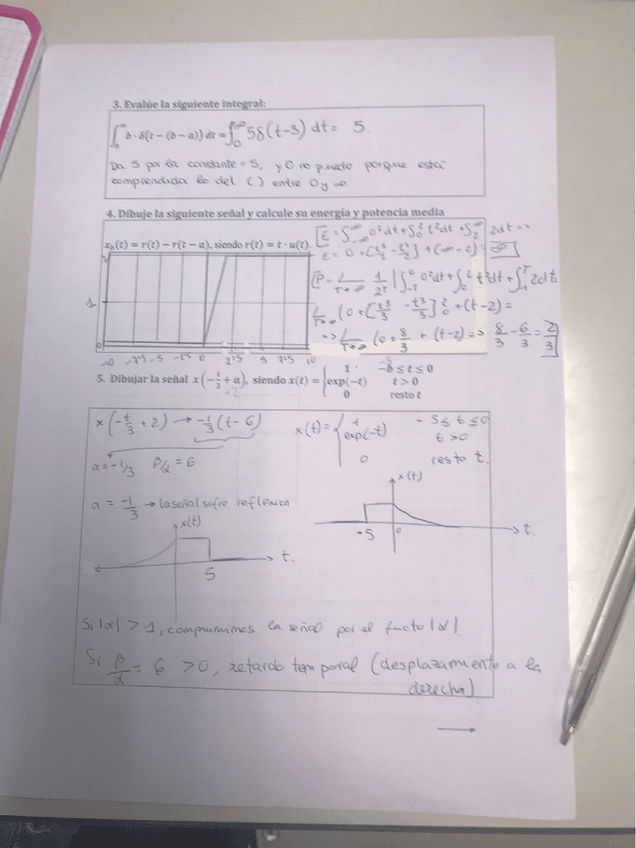 3. Evalúe la siguiente integral:
∫₀^∞ b·δ(t-(b-a)) dt = ∫₀^∞ 5δ(t-3) dt = 5.
Da 5 por la constante = 5, y 0 no puede porque está
comprendida lo del ( ) entre 0 y ∞.
4. Dibuje la siguiente señal y calcule su energía y potencia media
x_b(t) = r(t) − r(t − a), siendo r(t) = t · u(t).
E = ∫_{-∞}^{0} 0² dt + ∫₀² t² dt + ∫₂^∞ 2dt =>
[P = L
T→∞
L
T→∞
=> L
T→∞ (0 + 8/3 + (t-2) => 8/3 - 6/3 = 2/3
1
0
10
5. Dibujar la señal x(−t/3 + a), siendo x(t) = { 1 −b ≤ t ≤ 0
exp(−t) t > 0
0 resto t
+2
x(-t/3 + 2) → -1/3 (t-6)
x(t) = { 1 - 5 ≤ t ≤ 0
exp(-t) t > 0
0 resto t.
α = -1/3 β/α = 6
x(t)
α = -1/3 → la señal sufre reflexión
-5 0 t.
x(t)
t.
5
Si |α| > 1, comprimimos la señal por el factor |α|.
Si β/α = 6 > 0, retardo temporal (desplazamiento a la
derecha)